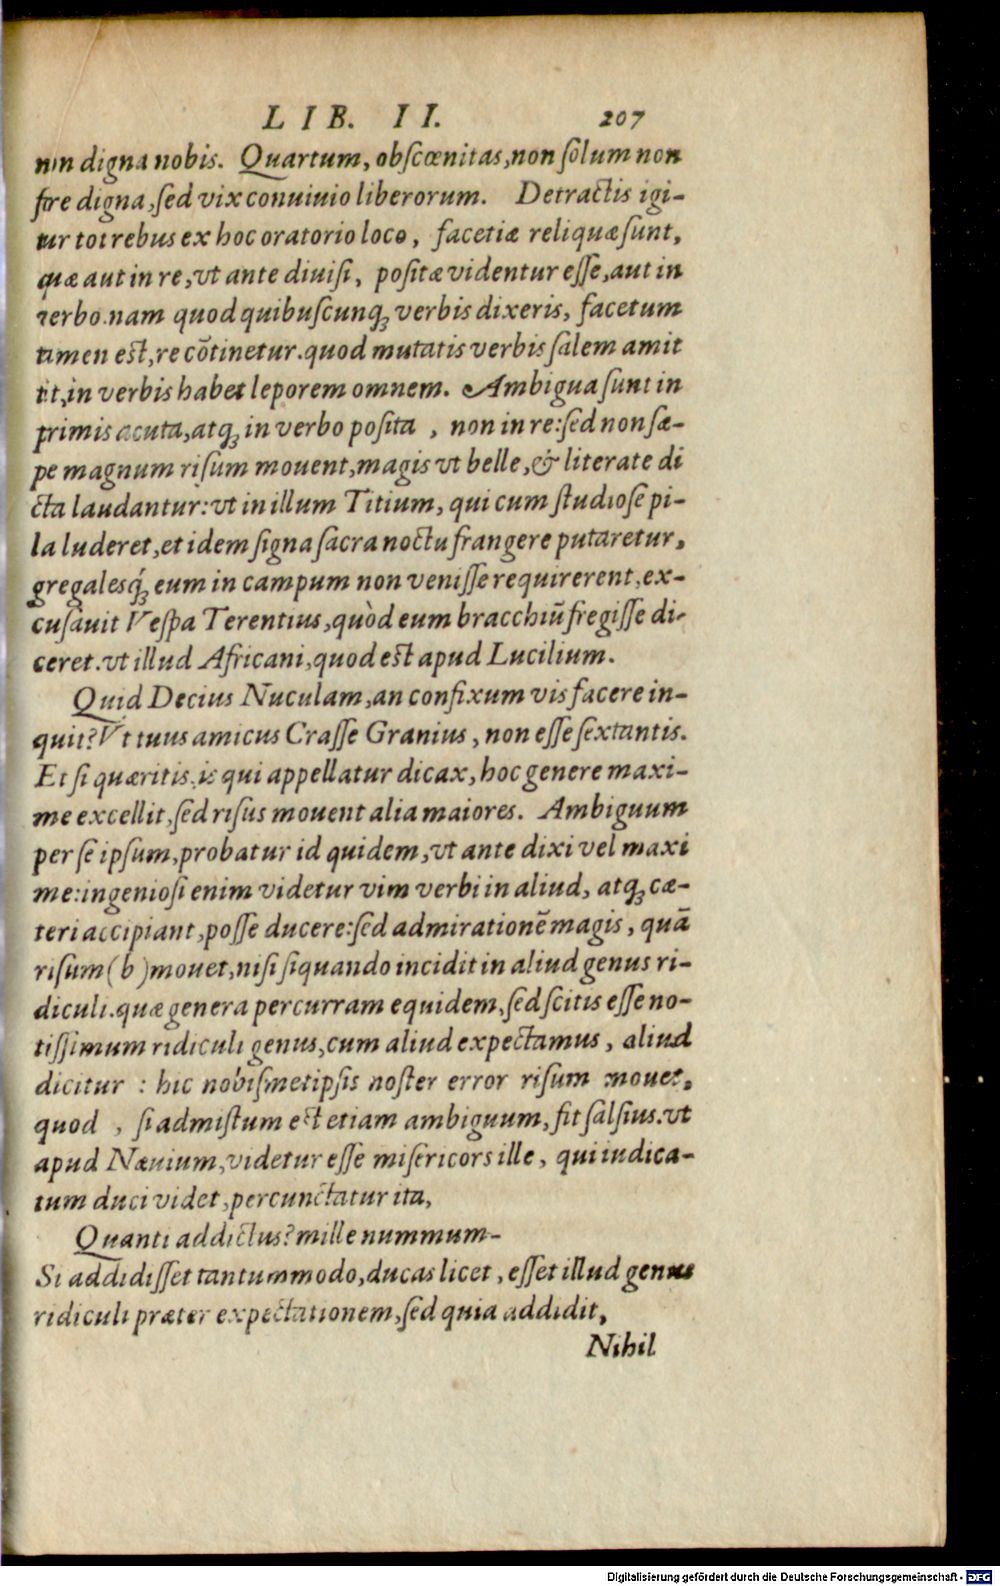 LIB. II. 207
non digna nobis. Quartum, obscœnitas, non solum non
fore digna, sed vix conuiuio liberorum. Detractis igi-
tur tot rebus ex hoc oratorio loco, facetiæ reliquæ sunt,
quæ aut in re, vt ante diuisi, positæ videntur esse, aut in
verbo. nam quod quibuscunq; verbis dixeris, facetum
tamen est, re cōtinetur. quod mutatis verbis salem amit
tit, in verbis habet leporem omnem. Ambigua sunt in
primis acuta, atq; in verbo posita , non in re: sed non sæ-
pe magnum risum mouent, magis vt belle, & literate di
cta laudantur: vt in illum Titium, qui cum studiose pi-
la luderet, et idem signa sacra noctu frangere putaretur,
gregalesq́; eum in campum non venisse requirerent, ex-
cusauit Vespa Terentius, quòd eum bracchiū fregisse di-
ceret. vt illud Africani, quod est apud Lucilium.
Quid Decius Nuculam, an confixum vis facere in-
quit? Vt tuus amicus Crasse Granius, non esse sextantis.
Et si quæritis, is qui appellatur dicax, hoc genere maxi-
me excellit, sed risus mouent alia maiores. Ambiguum
per se ipsum, probatur id quidem, vt ante dixi vel maxi
me: ingeniosi enim videtur vim verbi in aliud, atq; cæ-
teri accipiant, posse ducere: sed admirationē magis, quā
risum (b) mouet, nisi siquando incidit in aliud genus ri-
diculi. quæ genera percurram equidem, sed scitis esse no-
tissimum ridiculi genus, cum aliud expectamus, aliud
dicitur : hic nobismetipsis noster error risum mouet,
quod , si admistum est etiam ambiguum, fit salsius. vt
apud Næuium, videtur esse misericors ille, qui iudica-
tum duci videt, percunctatur ita,
Quanti addictus? mille nummum-
Si addidisset tantummodo, ducas licet, esset illud genus
ridiculi præter expectationem, sed quia addidit,
Nihil
Digitalisierung gefördert durch die Deutsche Forschungsgemeinschaft - DFG